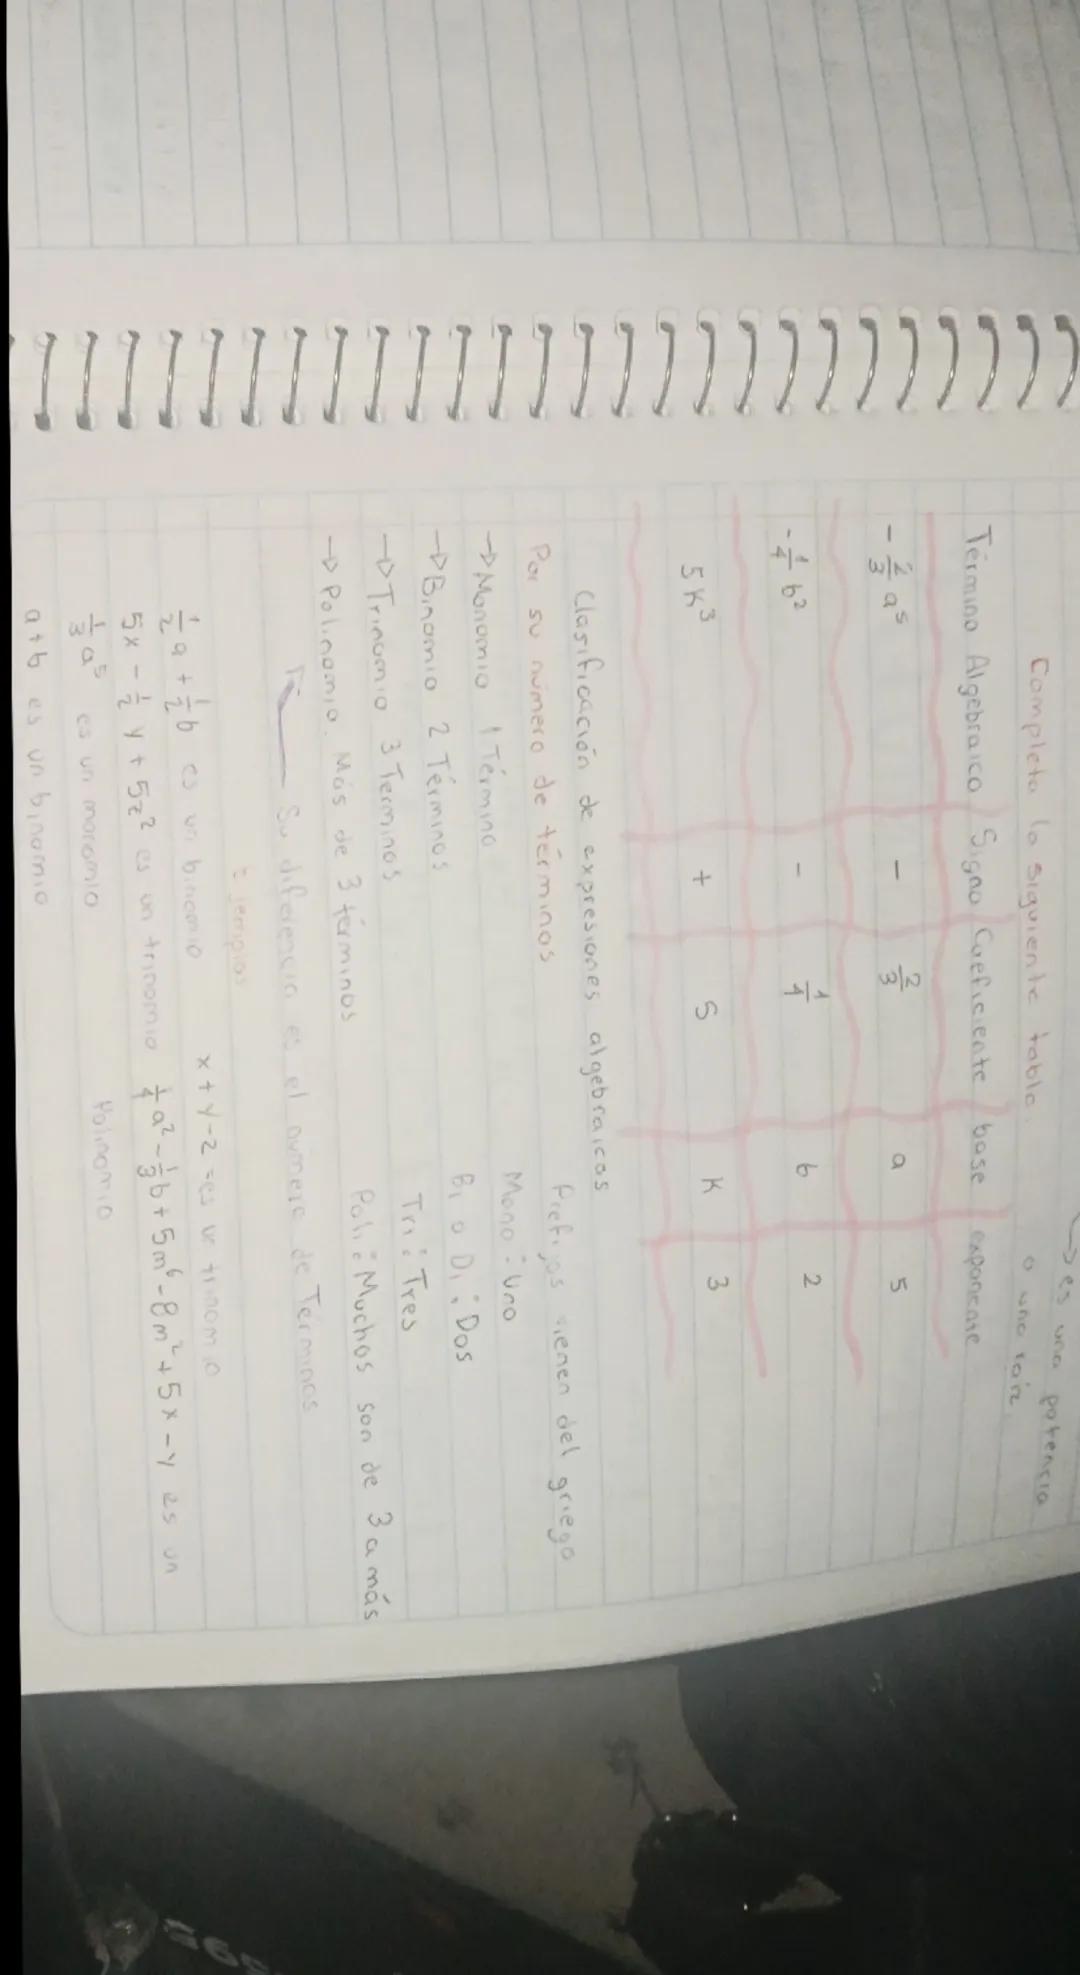 → es una potencia
o una raíz.
Completa la siguiente tabla.
Término Algebraico Signo Coeficiente base exponente
- 2/3 a⁵ - 2/3 a 5
- 1/4 b² - 1/4 b 2
5K³ + 5 K 3
Clasificación de expresiones algebraicas
Por su número de términos Prefijos vienen del griego
→ Monomio 1 Término Mono: Uno
→ Binomio 2 Términos Bi o Di: Dos
→ Trinomio 3 Terminos Tri: Tres
→ Polinomio. Más de 3 términos Poli: Muchos son de 3 a más
Su diferencia es el número de Términos
Ejemplos
1/2 a + 1/2 b es un binomio x + y - z = es un trinomio
5x - 1/2 y + 5z² es un trinomio 1/4 a² - 1/3 b + 5m⁶ - 8m² + 5x - y es un
1/3 a⁵ es un monomio Polinomio
a+b es un binomio